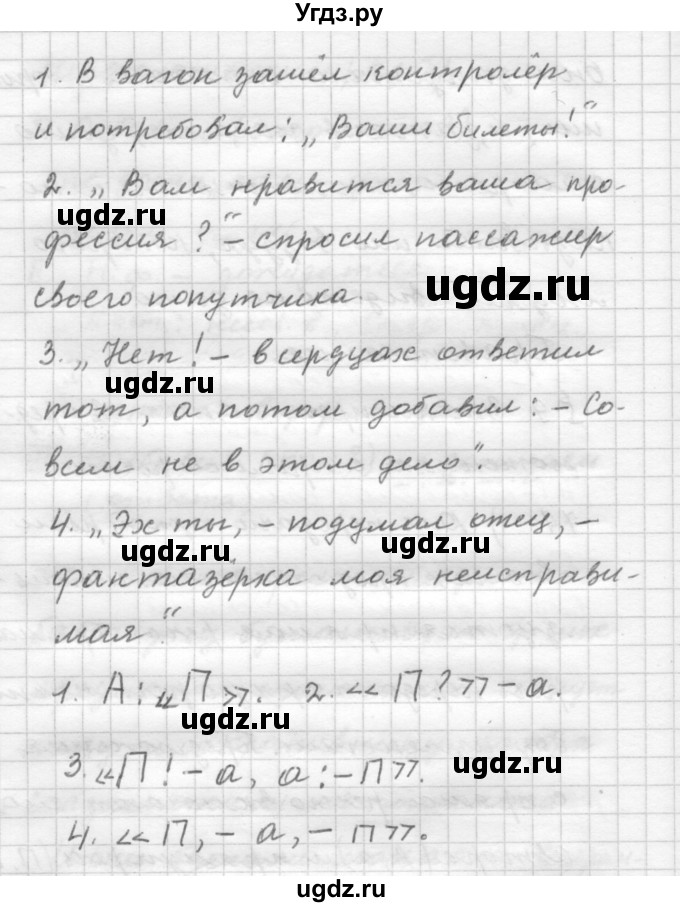 Угдз.ру
1. В вагон зашёл контролёр
и потребовал: „Ваши билеты!“
2. „Вам нравится ваша про-
ugdz.ru
фессия?“ – спросил пассажир
своего попутчика.
ugdz.ru
3. „Нет! – в сердцах ответил
ugdz.ru
тот, а потом добавил: – Со-
всем не в этом дело“.
4. „Эх ты, – подумал отец, –
ugdz.ru ugdz.ru
фантазёрка моя неисправи-
мая“.
1. А: «П». 2. «П?» – а.
ugdz.ru
3. «П! – а, а: – П».
ugdz.ru
4. «П, – а, – п».
ugdz.ru